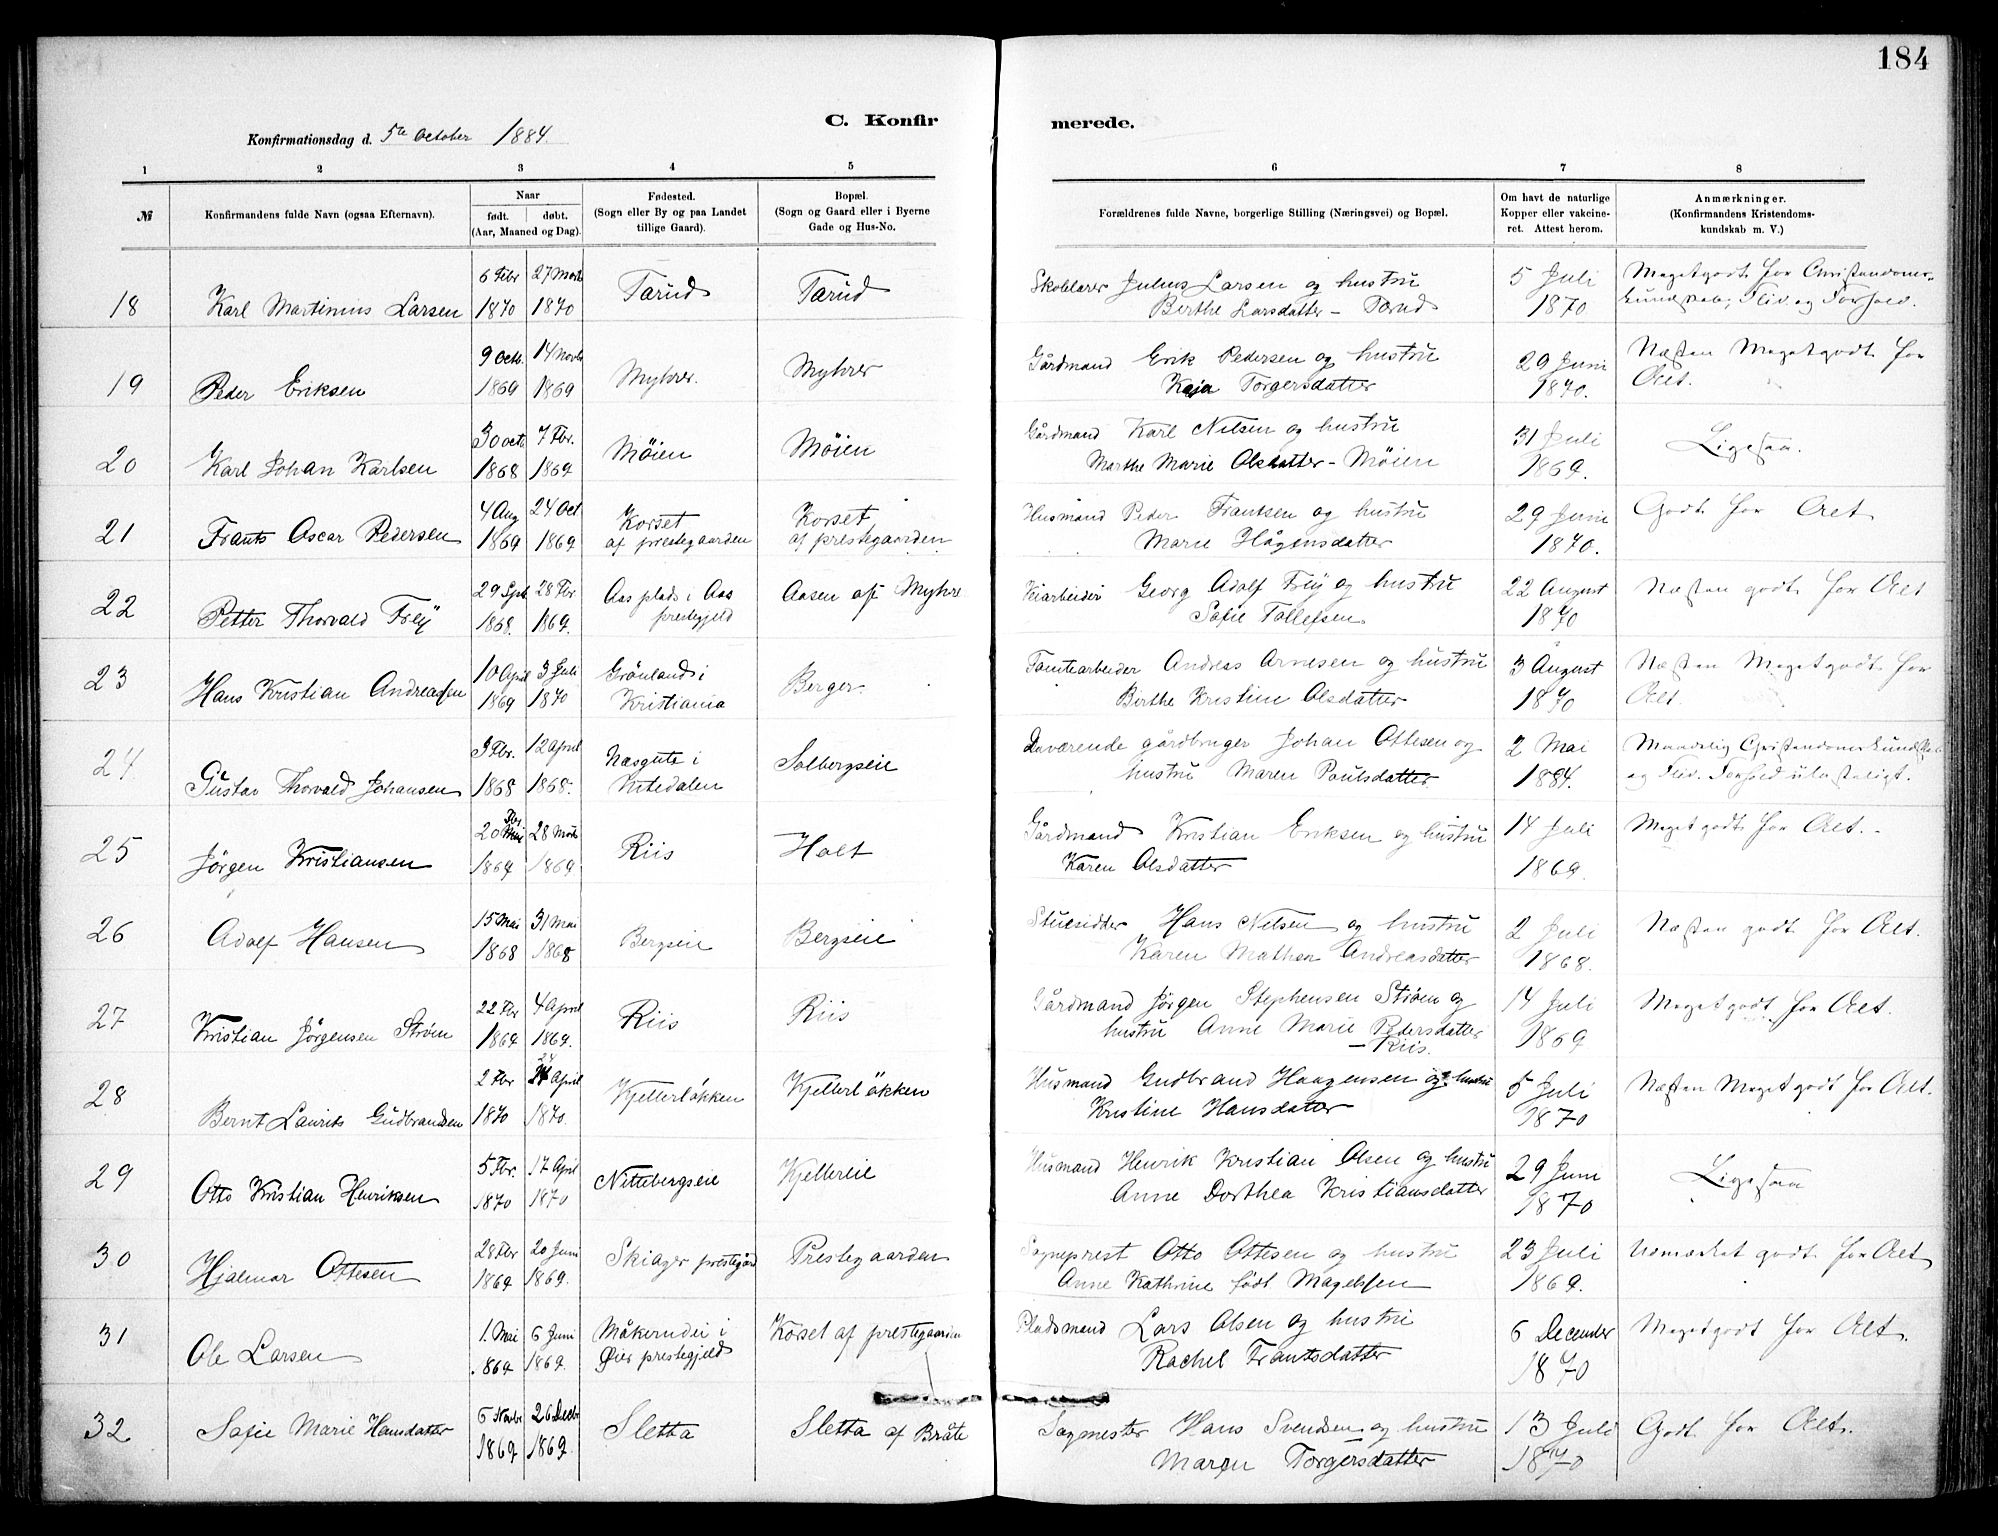 184
C. Konfir merede.
Konfirmationsdag d. 5te October 1884.
1 2 3 4 5 6 7 8
№ Konfirmandens fulde Navn (ogsaa Efternavn). Naar født. døbt. (Aar, Maaned og Dag). Fødested. (Sogn eller By og paa Landet tillige Gaard). Bopæl. (Sogn og Gaard eller i Byerne Gade og Hus-No. Forældrenes fulde Navne, borgerlige Stilling (Næringsvei) og Bopæl. Om havt de naturlige Kopper eller vakcineret. Attest herom. Anmærkninger. (Konfirmandens Kristendomskundskab m. V.)
6 Febr 27 Marts Tarud Tarud Skoblærer Julius Larsen og hustru 5 Juli Megetgodt for Christendoms-
18 Karl Martinius Larsen 1870 1870 Birthe Larsdatter - Tarud 1870 kundskab, Flid og Forhold.
9 Octb. 14 Novbr Myhrer. Myhrer Gårdmand Erik Pedersen og hustru 29 Juni Næsten Megetgodt for
19 Peder Eriksen 1869 1869 Kaja Torgersdatter 1870. Alt.
30 octb. 7 Fbr. Møien Møien Gårdmand Karl Nilsen og hustru 31 Juli Ligesaa.
20 Karl Johan Karlsen 1868 1869 Marthe Marie Olsdatter - Møien 1869.
4 Aug 24 Oct Korset Korset Husmand Peder Frantsen og hustru 29 Juni Godt for Alt
21 Frants Oscar Pedersen 1869 1869 af prestegaarden af prestegaarden Marie Hågensdatter 1870.
29 Sptb 28 Fbr Aas plads i Aas Aasen af Myhre Veiarbeider Georg Adolf Freij og hustru 22 August Næsten godt for Alt
22 Petter Thorvald Freij 1868. 1869. prestegjeld Sofie Tollefsen 1870
10 April 3 Juli Grönland i Berger. Tomtearbeider Andreas Arnesen og hustru 3 August Næsten Megetgodt for
23 Hans Kristian Andreassen 1869 1870 Kristiania Birthe Kristine Olsdatter 1870 Alt.
3 Fbr. 12 April Næsgute i Solbergseie Daværende gårdbruger Johan Ottesen og 2 Mai Maadelig Christendomskundskab
24 Gustav Thorvald Johansen 1868 1868. Nitedalen hustru Maren Poulsdatter 1884. og Flid. Forhold ulasteligt.
20 Fbr. 28 Marts Riis Holt Gårdmand Kristian Eriksen og hustru 14 Juli Megetgodt for Alt.
25 Jörgen Kristiansen 1869 1869 Karen Olsdatter 1869.
15 Mai 31 Mai Bergseie Bergseie Hans Nilsen og hustru 2 Juli Næsten godt for Alt.
26 Adolf Hansen 1868 1868 Karen Mathea Andreasdatter 1868.
22 Fbr 4 April Riis Riis Gårdmand Jörgen Stephensen Strøm og 14 Juli Megetgodt for Alt.
27 Kristian Jörgensen Strøm 1869 1869. hustru Anne Marie Pedersdatter 1869
- Riis.
2 Fbr 24 April Kjellerløkken Kjellerløkken Husmand Gudbrand Haagensen og hustru 5 Juli Næsten Megetgodt for Alt.
28 Bernt Laurits Gudbrandsen 1870 1870. Kristine Hansdatter 1870
5 Fbr. 17 April Nittebergseie Kjellereie Husmand Henrik Kristian Olsen og hustru 29 Juni Ligesaa
29 Otto Kristian Henriksen 1870 1870 Anne Dorthea Kristiansdatter 1870
28 Fbr 20 Juni Skiager prestegård Prestegaarden Sogneprest Otto Ottesen og hustru 23 Juli Udmærket godt for Alt
30 Hjalmar Ottesen 1869 1869. Anne Kathrine født Magelssen 1869.
1. Mai 6 Juni i Korset af prestegaarden Pladsmand Lars Olsen og hustru 6 December Megetgodt for Alt.
31 Ole Larsen 1869 1869. Øier prestegjeld Rachel Frantsdatter 1870
6 Novbr 26 Decbr Sletta Sletta af Bråte Sagmester Hans Svendsen og hustru 13 Juli Godt for Alt.
32 Sofie Marie Hansdatter 1869 1869. Maren Torgersdatter 1870